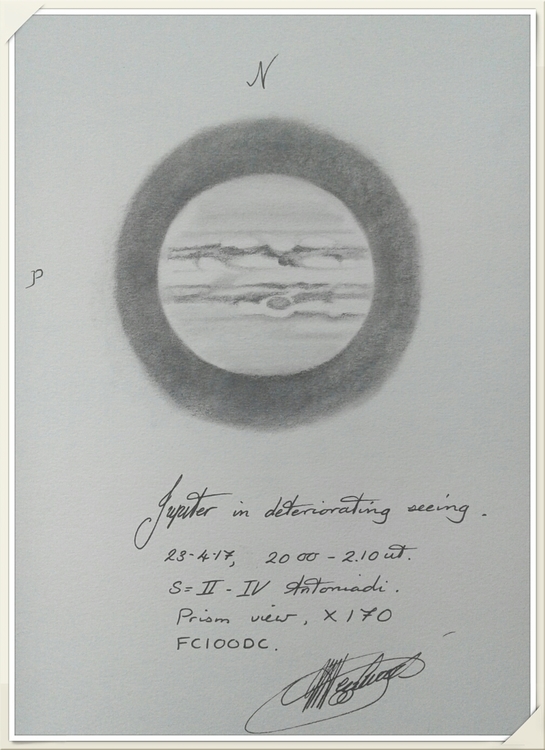 N
P
Jupiter in deteriorating seeing.
23-4-17, 20 00 - 2.10 ut.
S= II - IV Antoniadi.
Prism view, X170
FC100DC.